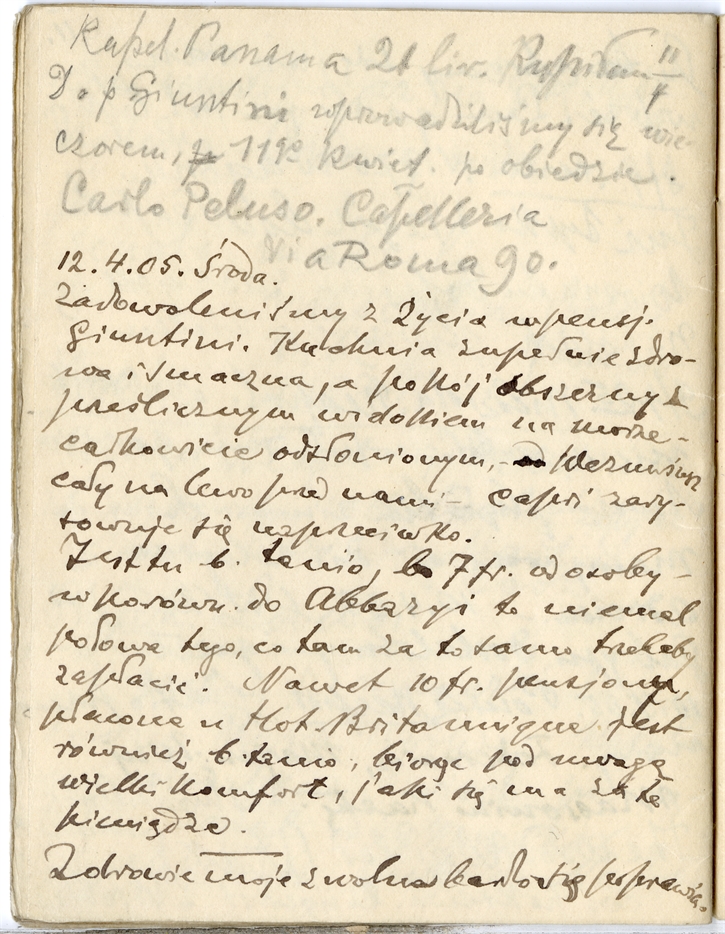 Kapel. Panama 21 lir. Kupiłam 11/4
Do p Giuntini wprowadziliśmy się wie-
czorem, 11go kwiet. po obiedzie.
Carlo Peluso. Capelleria
Via Roma 90.
12.4.05. Środa.
Zadowoleniśmy z Życia w pensj.
Giuntini. Kuchnia zupełnie zdro-
wa i smaczna, a pokój obszerny z
prześlicznym widokiem na morze -
całkowicie odsłonionym, - Wezuwiusz
cały na lewo przed nami - Capri zary-
sowuje się naprzeciwko.
Jest tu b. tanio, bo 7 fr. od osoby -
w porówn. do Abbazyi to niemal
połowa tego, co tam za to samo trzebaby
zapłacić. Nawet 10 fr. pensjony,
płacone w Hot. Britannique jest
również b. tanio, biorąc pod uwagę
wielki komfort, jaki się ma za te
pieniądze.
Zdrowie moje zwolna bardo się poprawia.